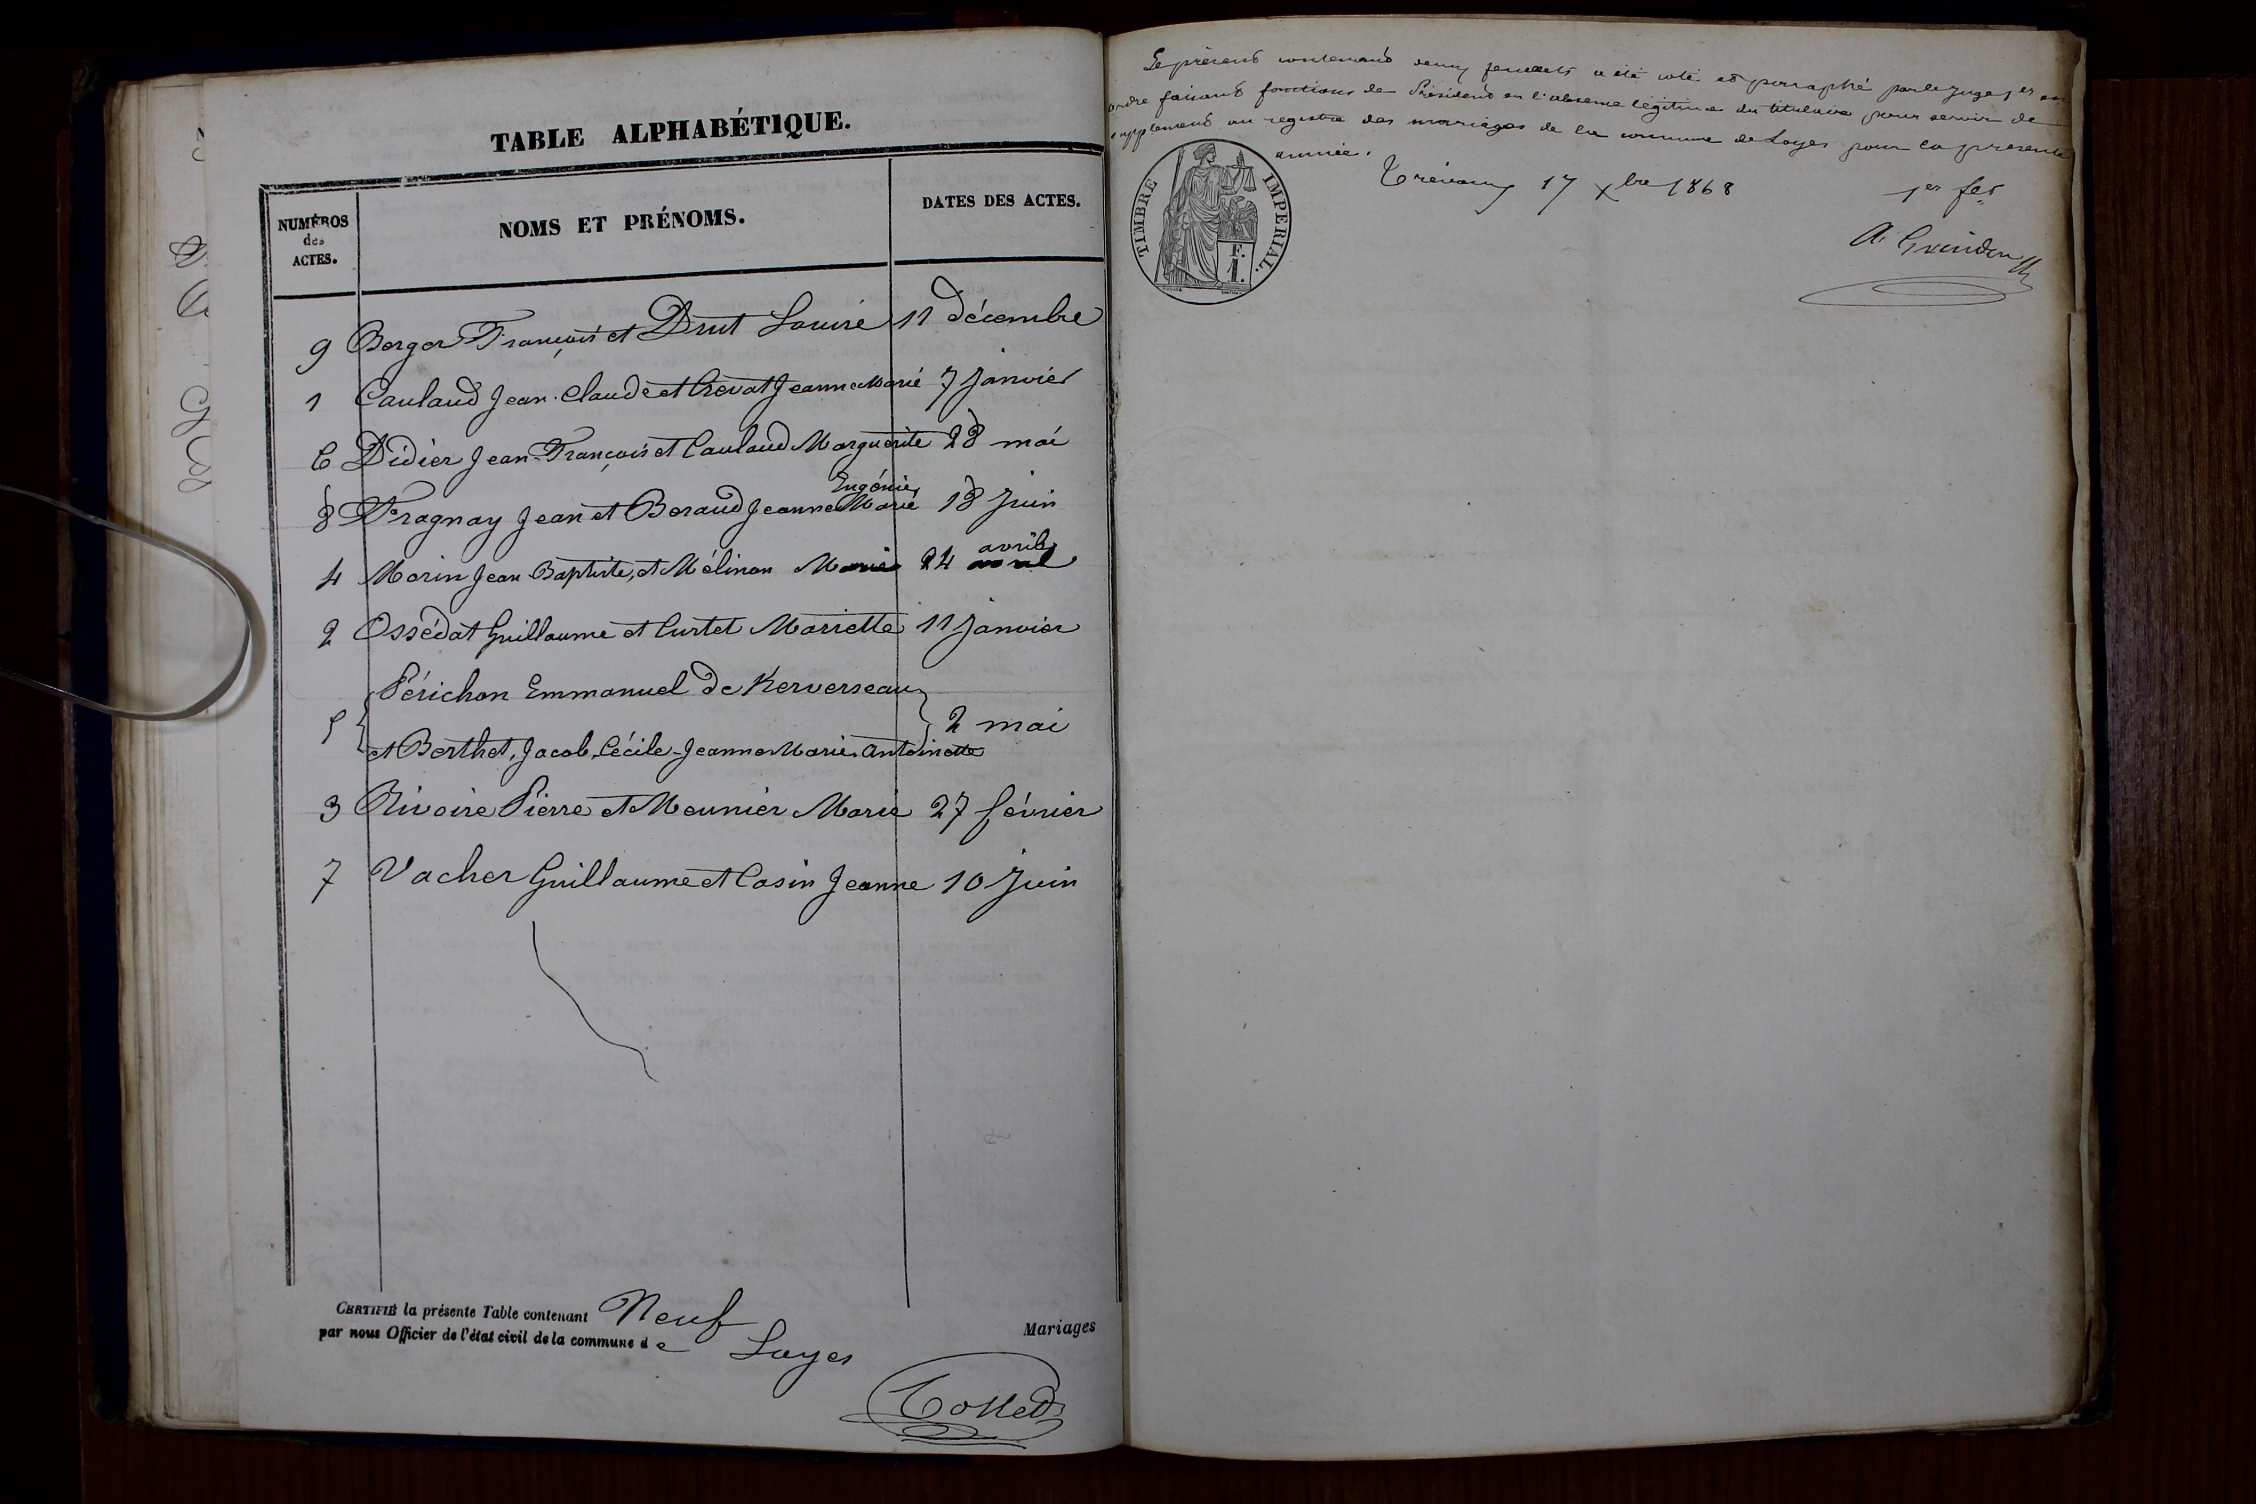 TABLE ALPHABÉTIQUE.
NUMÉROS
des
ACTES.
NOMS ET PRÉNOMS.
DATES DES ACTES.
9 Berger François et Drut Louise 11 décembre
1 Caulaud Jean-Claude et Crevat Jeanne Marie 7 janvier
6 Didier Jean-François et Caulaud Marguerite 28 mai
Eugénie
8 Fragnay Jean et Beraud Jeanne Marie 18 Juin
avril
4 Morin Jean Baptiste, et Mélinon Marie 24 avril
2 Ossédat Guillaume et Curtet Mariette 11 janvier
Périchon Emmanuel de Kerverseau
5 2 mai
et Berthet, Jacob, Cécile-Jeanne Marie Antoinette
3 Rivoire Pierre et Meunier Marie 27 février
7 Vacher Guillaume et Casin Jeanne 10 Juin
CERTIFIÉ la présente Table contenant Neuf Mariages
par nous Officier de l'état civil de la commune de Loyes
Le présent contenant deux feuillets a été coté et paraphé par le Juge 1er en
ordre faisant fonctions de Président en l'absence légitime du titulaire pour servir de
supplément au registre des mariages de la commune de Loyes pour la présente
année.
Trévoux 17 xbre 1868
1er fet
TIMBRE IMPERIAL.
F.
1.